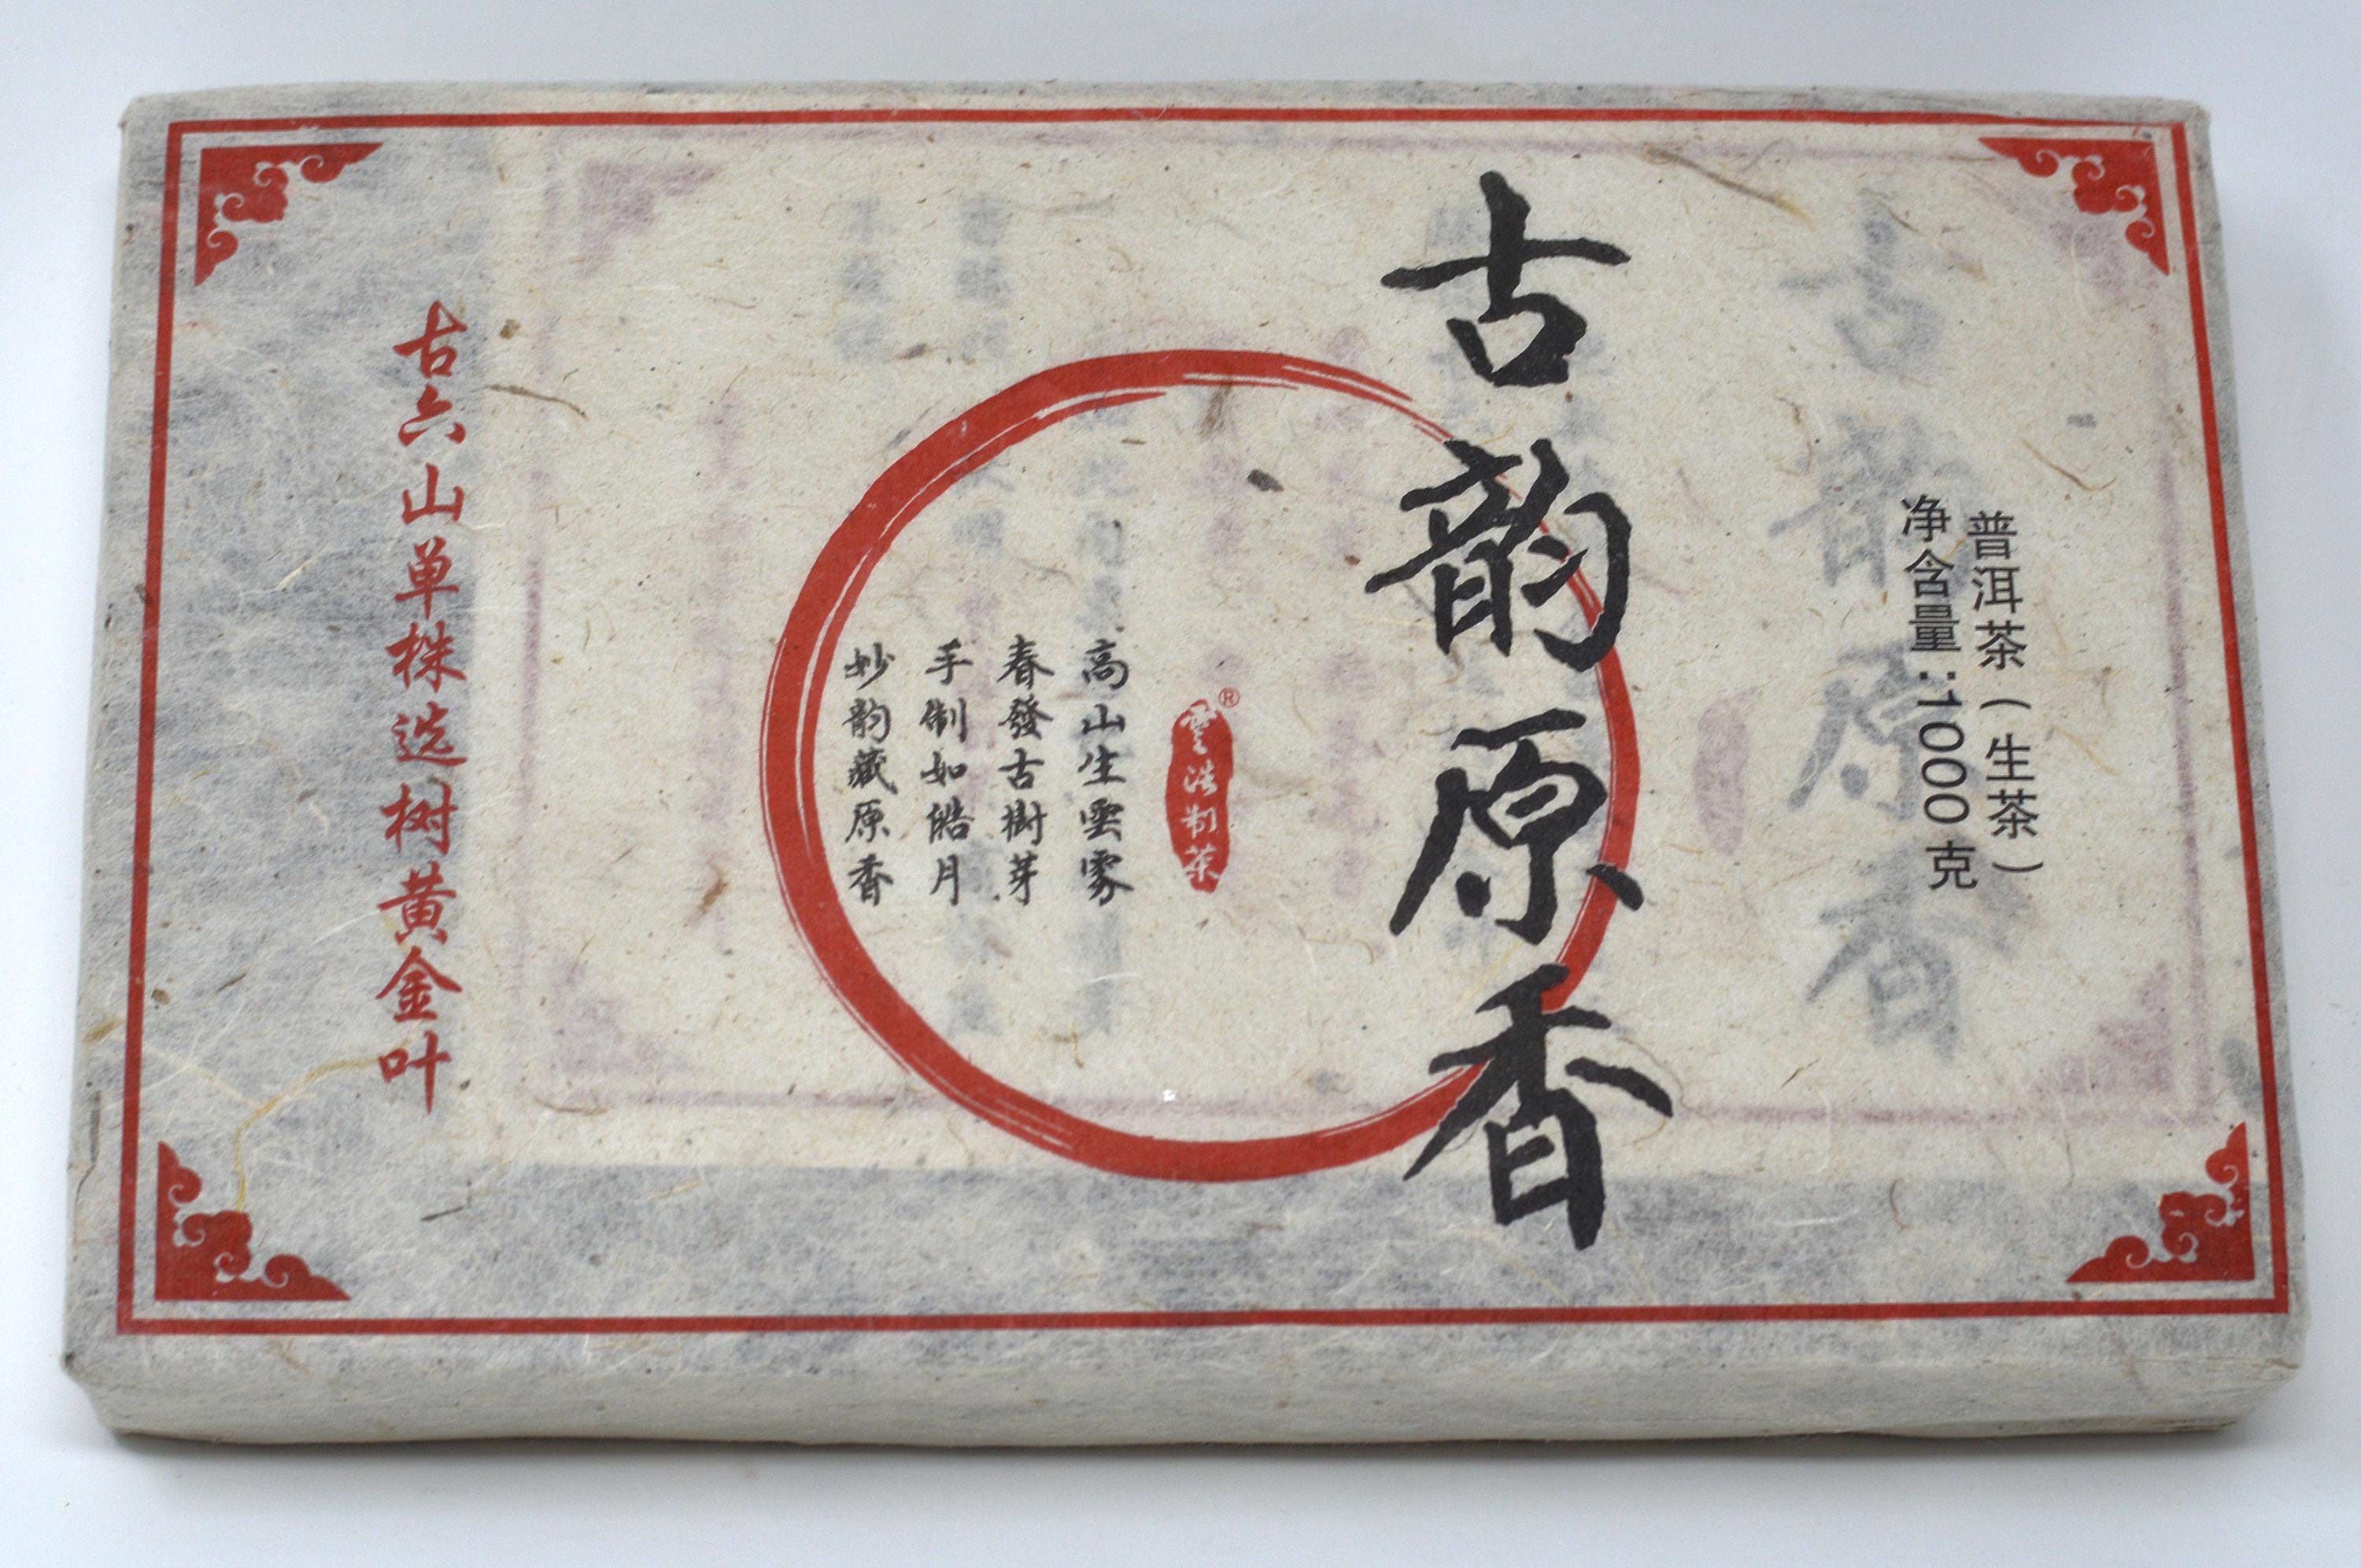 普洱茶(生茶)
净含量:1000克
古韵原香
®
雲浩制茶
高山生雲雾
春發古樹芽
手制如皓月
妙韵藏原香
古六山单株选树黄金叶